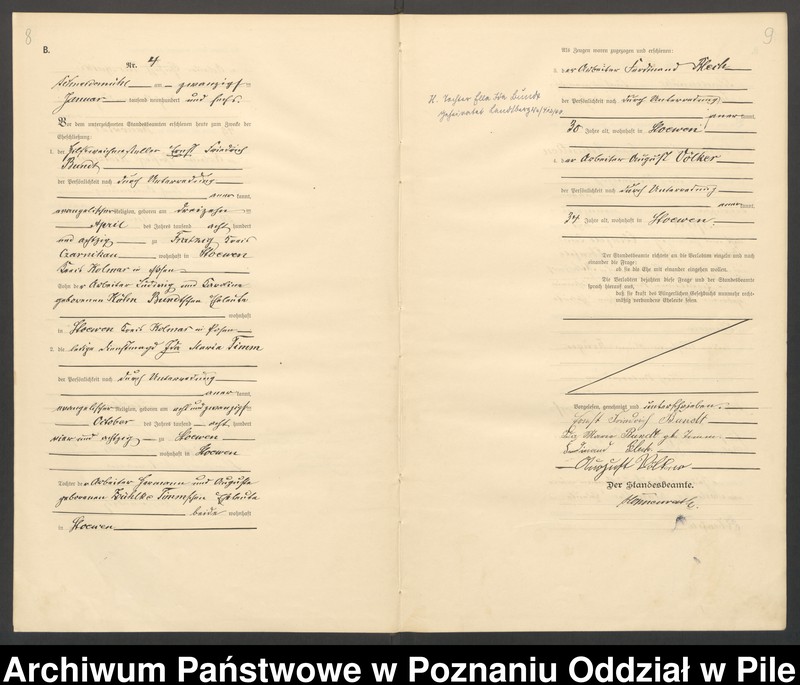 8
B.
Nr. 4
Schneidemühl am zwanzigsten
Januar tausend neunhundert und sechs.
Vor dem unterzeichneten Standesbeamten erschienen heute zum Zwecke der
Eheschließung:
1. der Hilfsweichensteller Ernst Friedrich
Bundt
der Persönlichkeit nach durch Unterredung
anerkannt,
evangelischer Religion, geboren am dreizehnten
April des Jahres tausend acht hundert
und achtzig zu Kreis
Czarnikau wohnhaft in Stoewen
Kreis Kolmar in Posen
Sohn des Arbeiter Ludwig und Karoline
geborenen Höhn Bundtschen Eheleute
wohnhaft
in Stoewen Kreis Kolmar in Posen
2. die ledige Dienstmagd Ida Maria Timm
der Persönlichkeit nach durch Unterredung
anerkannt,
evangelischer Religion, geboren am acht und zwanzigsten
October des Jahres tausend acht hundert
vier und achtzig zu Stoewen
wohnhaft in Stoewen
Tochter des Arbeiter Hermann und Auguste
geborenen Bühlke Timmschen Eheleute
beide wohnhaft
in Stoewen
9
Als Zeugen waren zugezogen und erschienen:
3. der Arbeiter Ferdinand Blech
der Persönlichkeit nach durch Unterredung
anerkannt,
30 Jahre alt, wohnhaft in Stoewen
4. der Arbeiter August Völker
der Persönlichkeit nach durch Unterredung
anerkannt,
34 Jahre alt, wohnhaft in Stoewen
Der Standesbeamte richtete an die Verlobten einzeln und nach
einander die Frage:
ob sie die Ehe mit einander eingehen wollen.
Die Verlobten bejahten diese Frage und der Standesbeamte
sprach hierauf aus,
daß sie kraft des Bürgerlichen Gesetzbuchs nunmehr recht-
mäßig verbundene Eheleute seien.
Vorgelesen, genehmigt und unterschrieben
Ernst Friedrich Bundt
Ida Maria Bundt geb. Timm
Ferdinand Blech
August Völker
Der Standesbeamte.
Tochter Ella Ida Bundt
geheiratet Landsberg
Archiwum Państwowe w Poznaniu Oddział w Pile